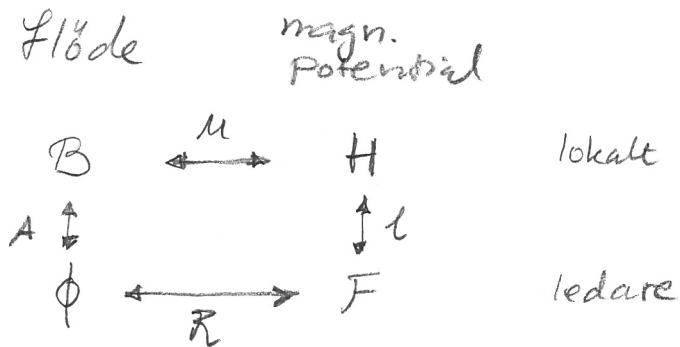 Flöde magn.
potential
μ
B H lokalt
A l
ϕ F ledare
R